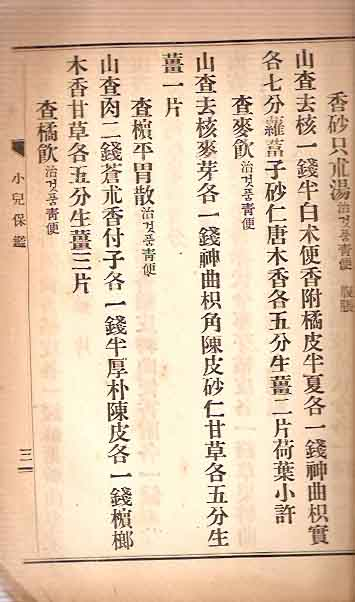 香砂只朮湯 治것품青便 腹脹
山查去核一錢半白朮便香附橘皮半夏各一錢神曲枳實
各七分蘿葍子砂仁唐木香各五分生薑二片荷葉小許
查麥飮 治것품青便
山查去核麥芽各一錢神曲枳角陳皮砂仁甘草各五分生
薑一片
查檳平胃散 治것품青便
山查肉二錢蒼朮香付子各一錢半厚朴陳皮各一錢檳榔
木香甘草各五分生薑三片
查橘飮 治것품青便
小兒保鑑